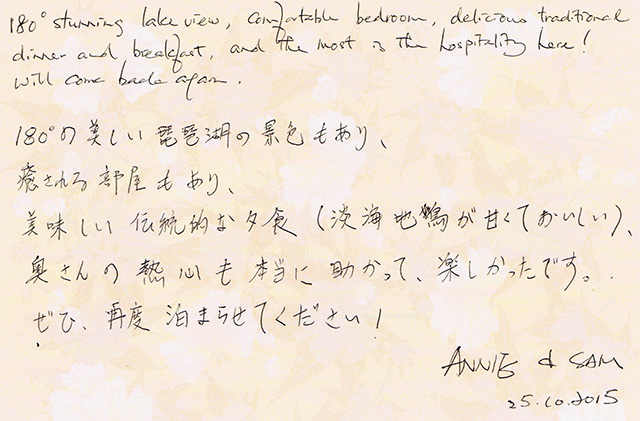 180° stunning lake view, comfortable bedroom, delicious traditional
dinner and breakfast, and the most is the hospitality here!
will come back again.
180°の美しい琵琶湖の景色もあり、
癒される部屋もあり、
美味しい伝統的な夕食（淡海地鴨が甘くておいしい）、
奥さんの熱心も本当に助かって、楽しかったです。
ぜひ、再度泊まらせてください！
ANNIE & SAM
25.10.2015